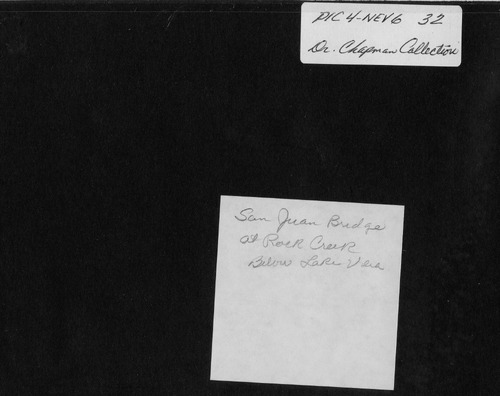 PIC 4-NEV6 32
Dr. Chapman Collection
San Juan Bridge
at Rock Creek
Below Lake Vera